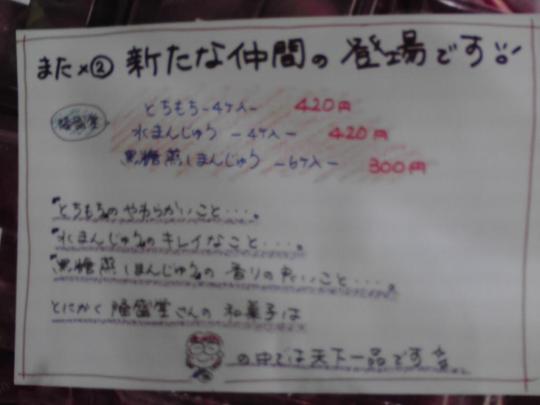 また×② 新たな仲間の登場です
隆盛堂
とちもち -4ケ入- 420円
水まんじゅう -4ケ入- 420円
黒糖蒸しまんじゅう -6ケ入- 300円
"とちもち"のやわらかいこと・・・・。
"水まんじゅう"のキレイなこと・・・・。
"黒糖蒸しまんじゅう"の 香りの良いこと・・・・。
とにかく 隆盛堂さんの 和菓子は
の中では天下一品です